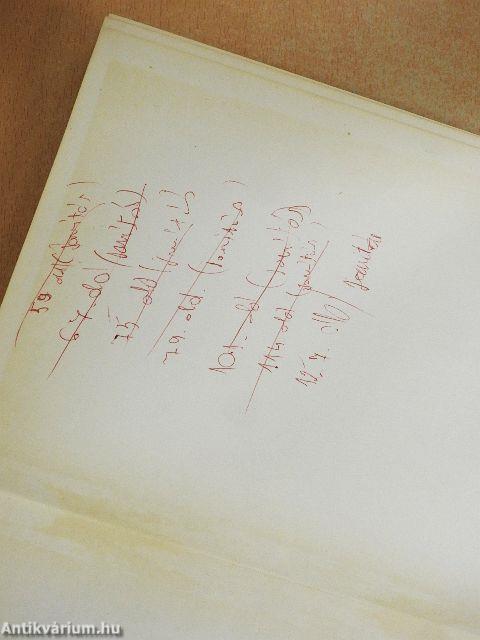 59. old (javítás)
67 old (javítás)
75 old (javítás)
79. old. (javítás)
101. old (javítás)
114 old (javítás)
old javítás
Antikvárium.hu